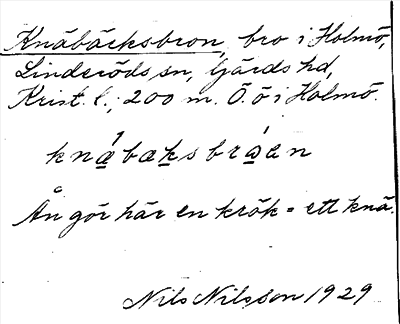 Knäbäcksbron, bro i Holmö,
Linderöds sn, Gärds hd,
Krist. l.; 200 m. Ö. ö i Holmö.
knábæksbrɷen
Ån gör här en krök = ett knä.
Nils Nilsson 1929